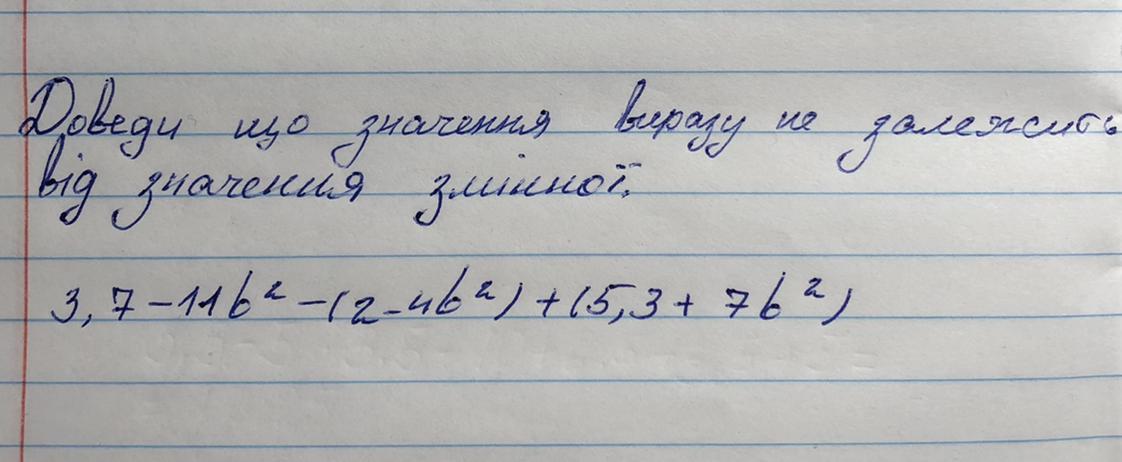 Доведи що значення виразу не залежить
від значення змінної.
3,7-11b²-(2-4b²)+(5,3+7b²)